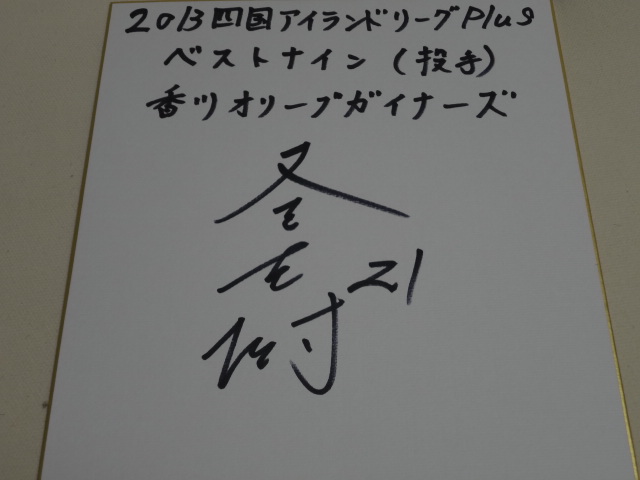 2013四国アイランドリーグPlus
ベストナイン(投手)
香川オリーブガイナーズ
21